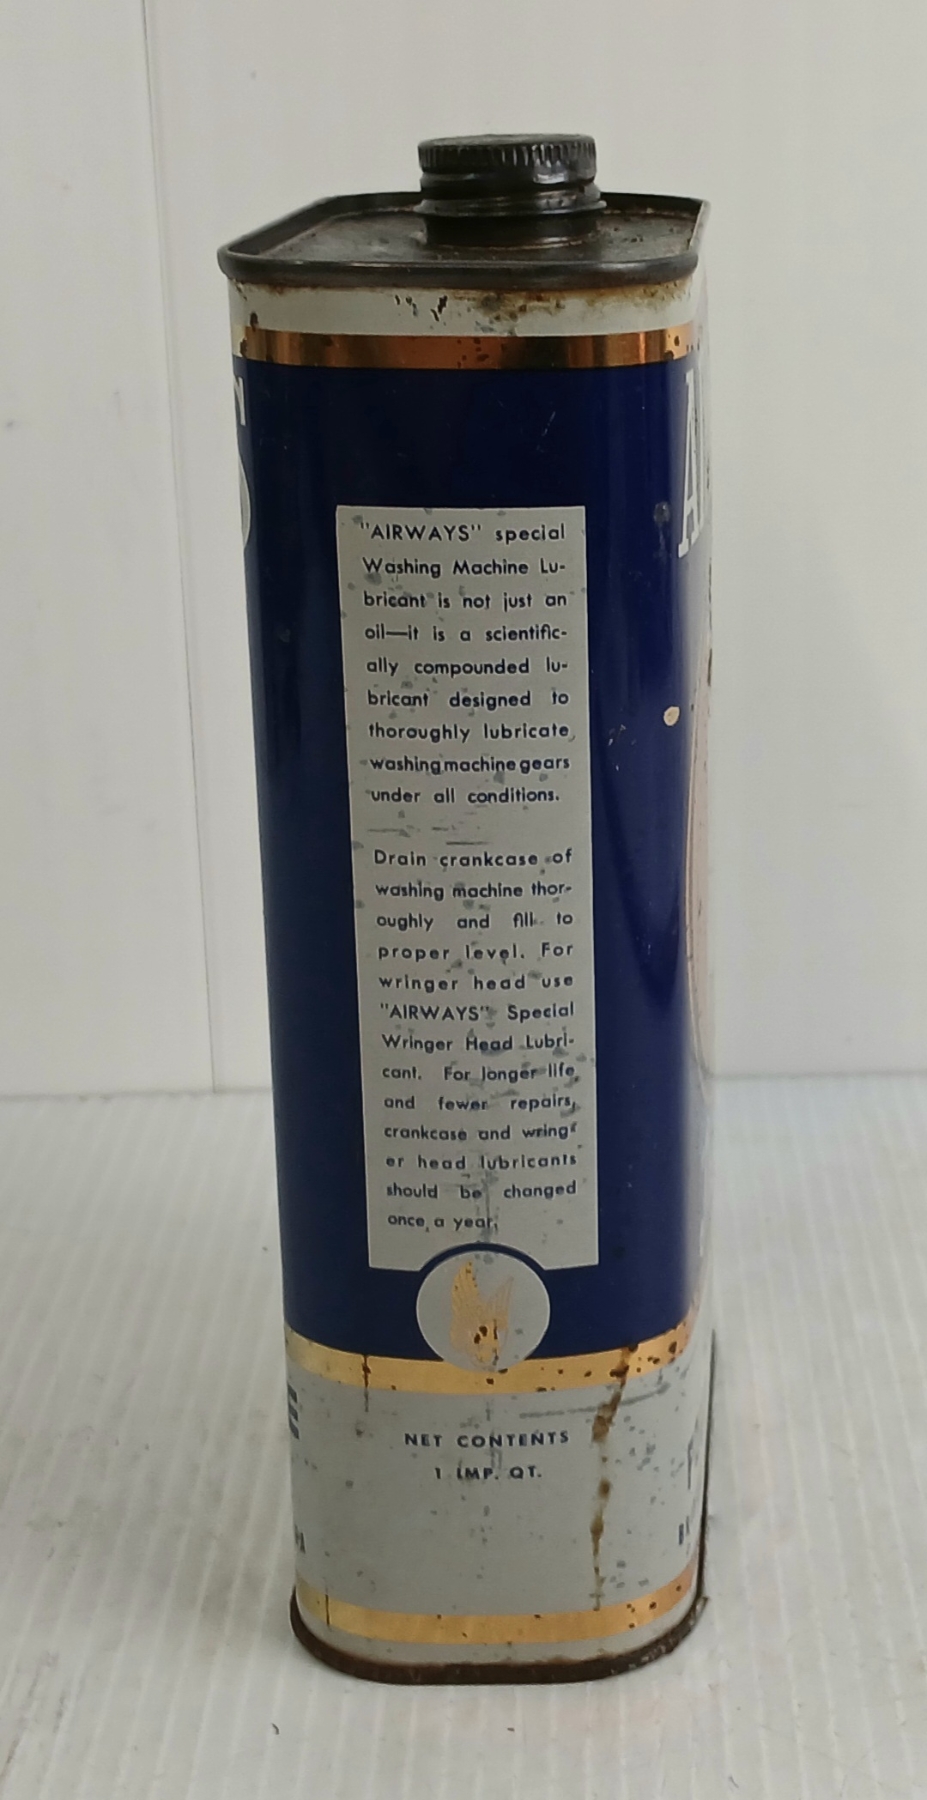 "AIRWAYS" special
Washing Machine Lu-
bricant is not just an
oil—it is a scientific-
ally compounded lu-
bricant designed to
thoroughly lubricate
washing machine gears
under all conditions.
Drain crankcase of
washing machine thor-
oughly and fill to
proper level. For
wringer head use
"AIRWAYS" Special
Wringer Head Lubri-
cant. For longer life
and fewer repairs,
crankcase and wring-
er head lubricants
should be changed
once a year.
NET CONTENTS
1 IMP. QT.